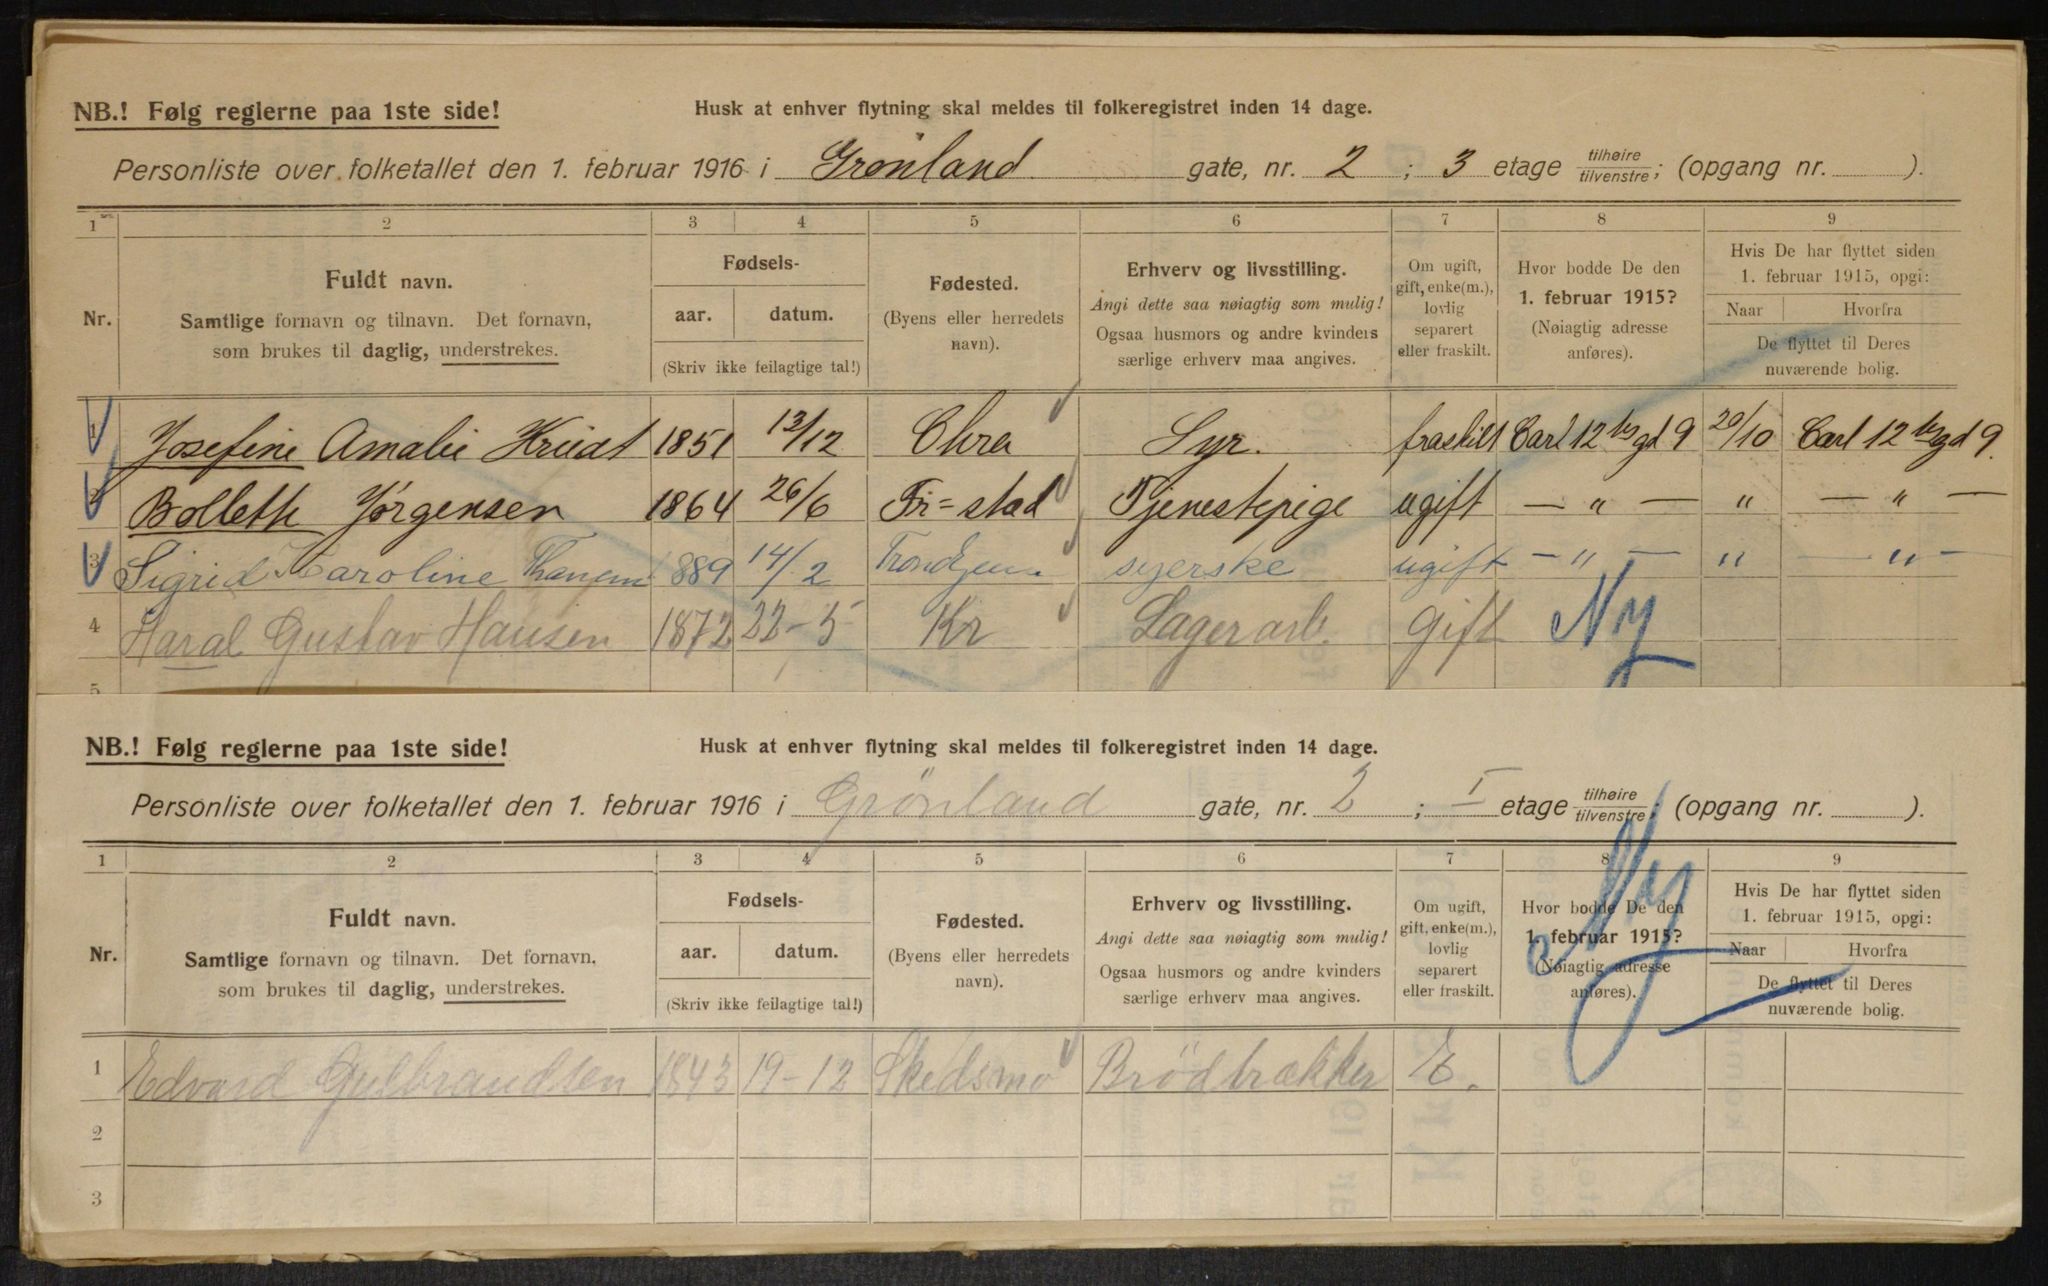 NB.! Følg reglerne paa 1ste side! Husk at enhver flytning skal meldes til folkeregistret inden 14 dage.
Personliste over folketallet den 1. februar 1916 i Grønland gate, nr. 2 ; 3 etage tilhøire/tilvenstre; (opgang nr. ).
1 2 3 4 5 6 7 8 9
Nr.
Fuldt navn.
Samtlige fornavn og tilnavn. Det fornavn,
som brukes til daglig, understrekes.
Fødsels-
aar. datum.
(Skriv ikke feilagtige tal!)
Fødested.
(Byens eller herredets
navn).
Erhverv og livsstilling.
Angi dette saa nøiagtig som mulig!
Ogsaa husmors og andre kvinders
særlige erhverv maa angives.
Om ugift,
gift, enke(m.),
lovlig
separert
eller fraskilt.
Hvor bodde De den
1. februar 1915?
(Nøiagtig adresse
anføres).
Hvis De har flyttet siden
1. februar 1915, opgi:
Naar Hvorfra
De flyttet til Deres
nuværende bolig.
1 Josefine Amalie 1851 13/12 Chra Syr. fraskilt Carl 12 gd 9 20/10 Carl 12 gd 9.
2 Bollette Jørgensen 1864 26/6 Fr=stad Tjenestepige ugift — " — " — " —
3 Sigrid Karoline 1889 14/2 Trondjem syerske ugift — " — " — " —
4 Haral Gustav Hansen 1872 22-5 Kr Lagerarb. Gift Ny
5
NB.! Følg reglerne paa 1ste side! Husk at enhver flytning skal meldes til folkeregistret inden 14 dage.
Personliste over folketallet den 1. februar 1916 i Grønland gate, nr. 2 ; I etage tilhøire/tilvenstre; (opgang nr. ).
1 2 3 4 5 6 7 8 9
Ny
Nr.
Fuldt navn.
Samtlige fornavn og tilnavn. Det fornavn,
som brukes til daglig, understrekes.
Fødsels-
aar. datum.
(Skriv ikke feilagtige tal!)
Fødested.
(Byens eller herredets
navn).
Erhverv og livsstilling.
Angi dette saa nøiagtig som mulig!
Ogsaa husmors og andre kvinders
særlige erhverv maa angives.
Om ugift,
gift, enke(m.),
lovlig
separert
eller fraskilt.
Hvor bodde De den
1. februar 1915?
(Nøiagtig adresse
anføres).
Hvis De har flyttet siden
1. februar 1915, opgi:
Naar Hvorfra
De flyttet til Deres
nuværende bolig.
1 Edvard Gulbrandsen 1843 19-12 Skedsmo Brödtrækker E.
2
3